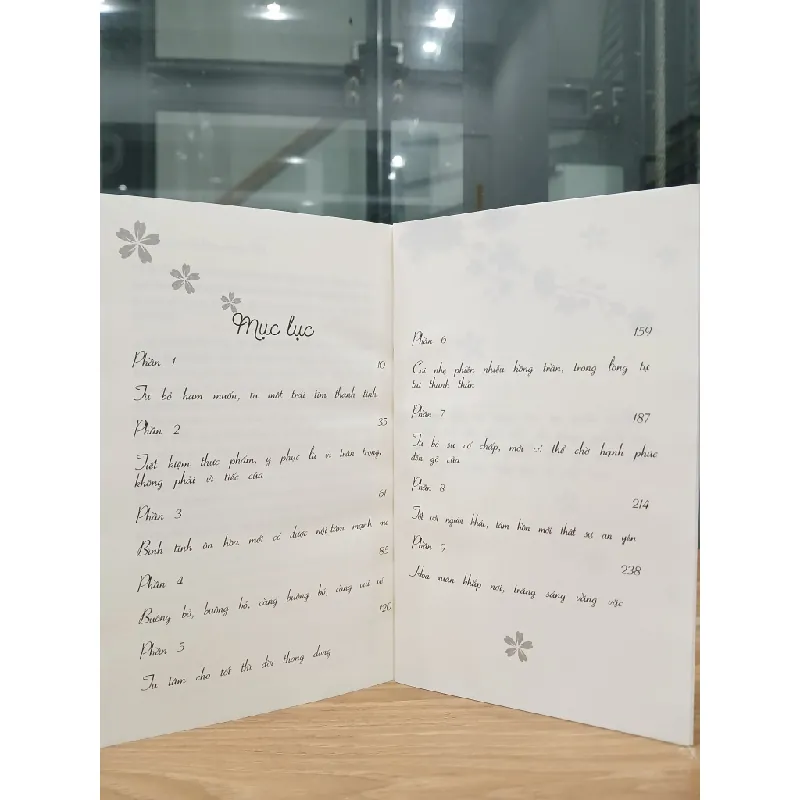 Mục lục
Phần 1
10
Từ bỏ ham muốn, tu một trái tim thanh tịnh
Phần 2
35
Tiết kiệm thực phẩm, y phục là vì trân trọng,
không phải vì tiếc của
Phần 3
61
Bình tĩnh ôn hòa, mới có được nội tâm mạnh mẽ
Phần 4
85
Buông bỏ, buông bỏ, càng buông bỏ, càng vui vẻ
Phần 5
126
Tu tâm cho tới
Phần 6
159
phiền nhiễu hồng trần, trong lòng tự
thanh thản
Phần 7
187
Từ bỏ sự cố chấp, mới có thể chờ hạnh phúc
đến gõ cửa
Phần 8
214
người khác, tâm hồn mới thật sự an yên
Phần 9
238
Hoa xuân khắp nơi, trăng sáng vằng vặc